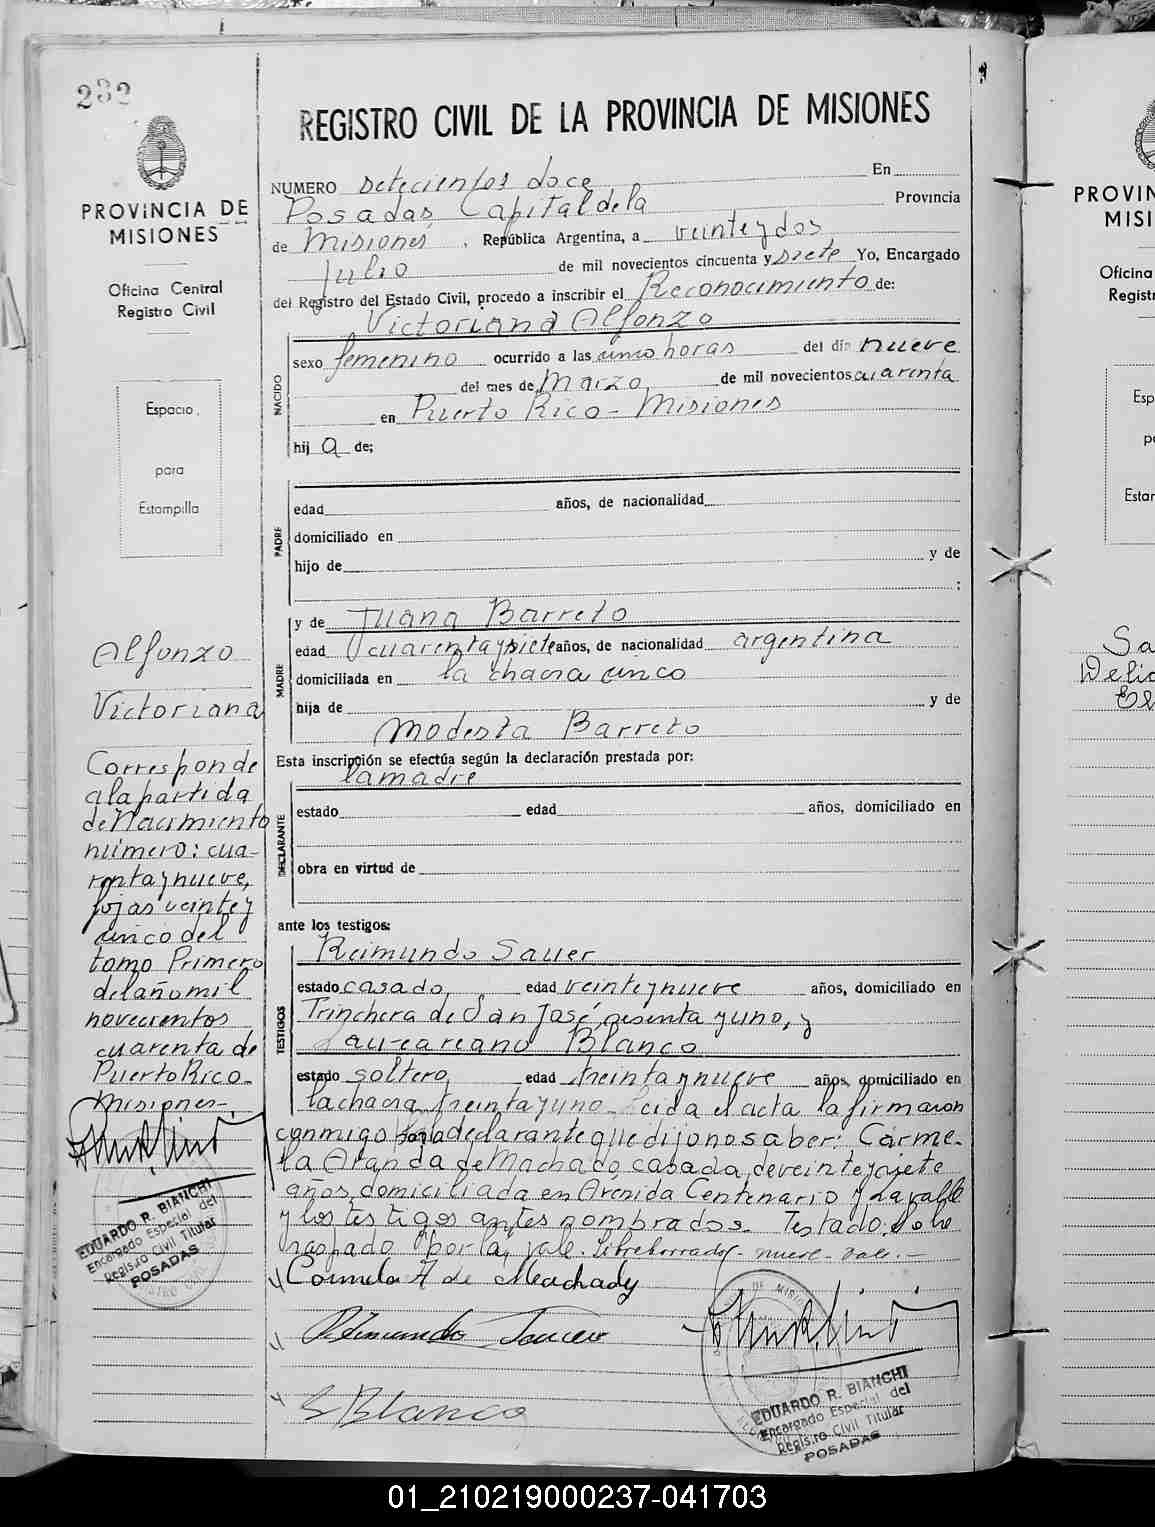 232
PROVINCIA DE
MISIONES
Oficina Central
Registro Civil
Espacio
para
Estampilla
Alfonzo
Victoriana
Corresponde
a la partida
de Nacimiento
número: cua-
renta y nueve,
fojas veinte y
cinco del
tomo Primero
del año mil
novecientos
cuarenta de
Puerto Rico
Misiones.
EDUARDO R. BIANCHI
Encargado Especial del
Registro Civil Titular
POSADAS
REGISTRO CIVIL DE LA PROVINCIA DE MISIONES
NUMERO Setecientos doce En
Posadas Capital de la Provincia
de Misiones, República Argentina, a veinte y dos
Julio de mil novecientos cincuenta y siete Yo, Encargado
del Registro del Estado Civil, procedo a inscribir el Reconocimiento de:
Victoriana Alfonzo
NACIDO
sexo femenino ocurrido a las cinco horas del día nueve
del mes de Marzo, de mil novecientos cuarenta
en Puerto Rico - Misiones
hij a de;
PADRE
edad años, de nacionalidad
domiciliado en
hijo de y de
;
MADRE
y de Juana Barreto
edad cuarenta y siete años, de nacionalidad argentina
domiciliada en la chacra cinco
hija de y de
Modesta Barreto
Esta inscripción se efectúa según la declaración prestada por:
la madre
DECLARANTE
estado edad años, domiciliado en
obra en virtud de
ante los testigos:
TESTIGOS
Reimundo Sauer
estado casado, edad veinte y nueve años, domiciliado en
Trinchera de San José sesenta y uno, y
Blanco
estado soltero, edad treinta y nueve años, domiciliado en
la chacra treinta y uno Leida el acta la firmaron
conmigo por la declarante que dijo no saber: Carme-
la Aranda de Machado, casada, de veinte y siete
años, domiciliada en Avenida Centenario y Lavalle
y los testigos antes nombrados. Testado:
raspado "por la, vale. Sobreborrado - nueve - vale. -
Carmela A de Machady
S Blanco
EDUARDO R. BIANCHI
Encargado Especial del
Registro Civil Titular
POSADAS
PROVIN
MISI
Oficina
Registr
Esp
pa
Estam
Sa
Delic
El
01_210219000237-041703